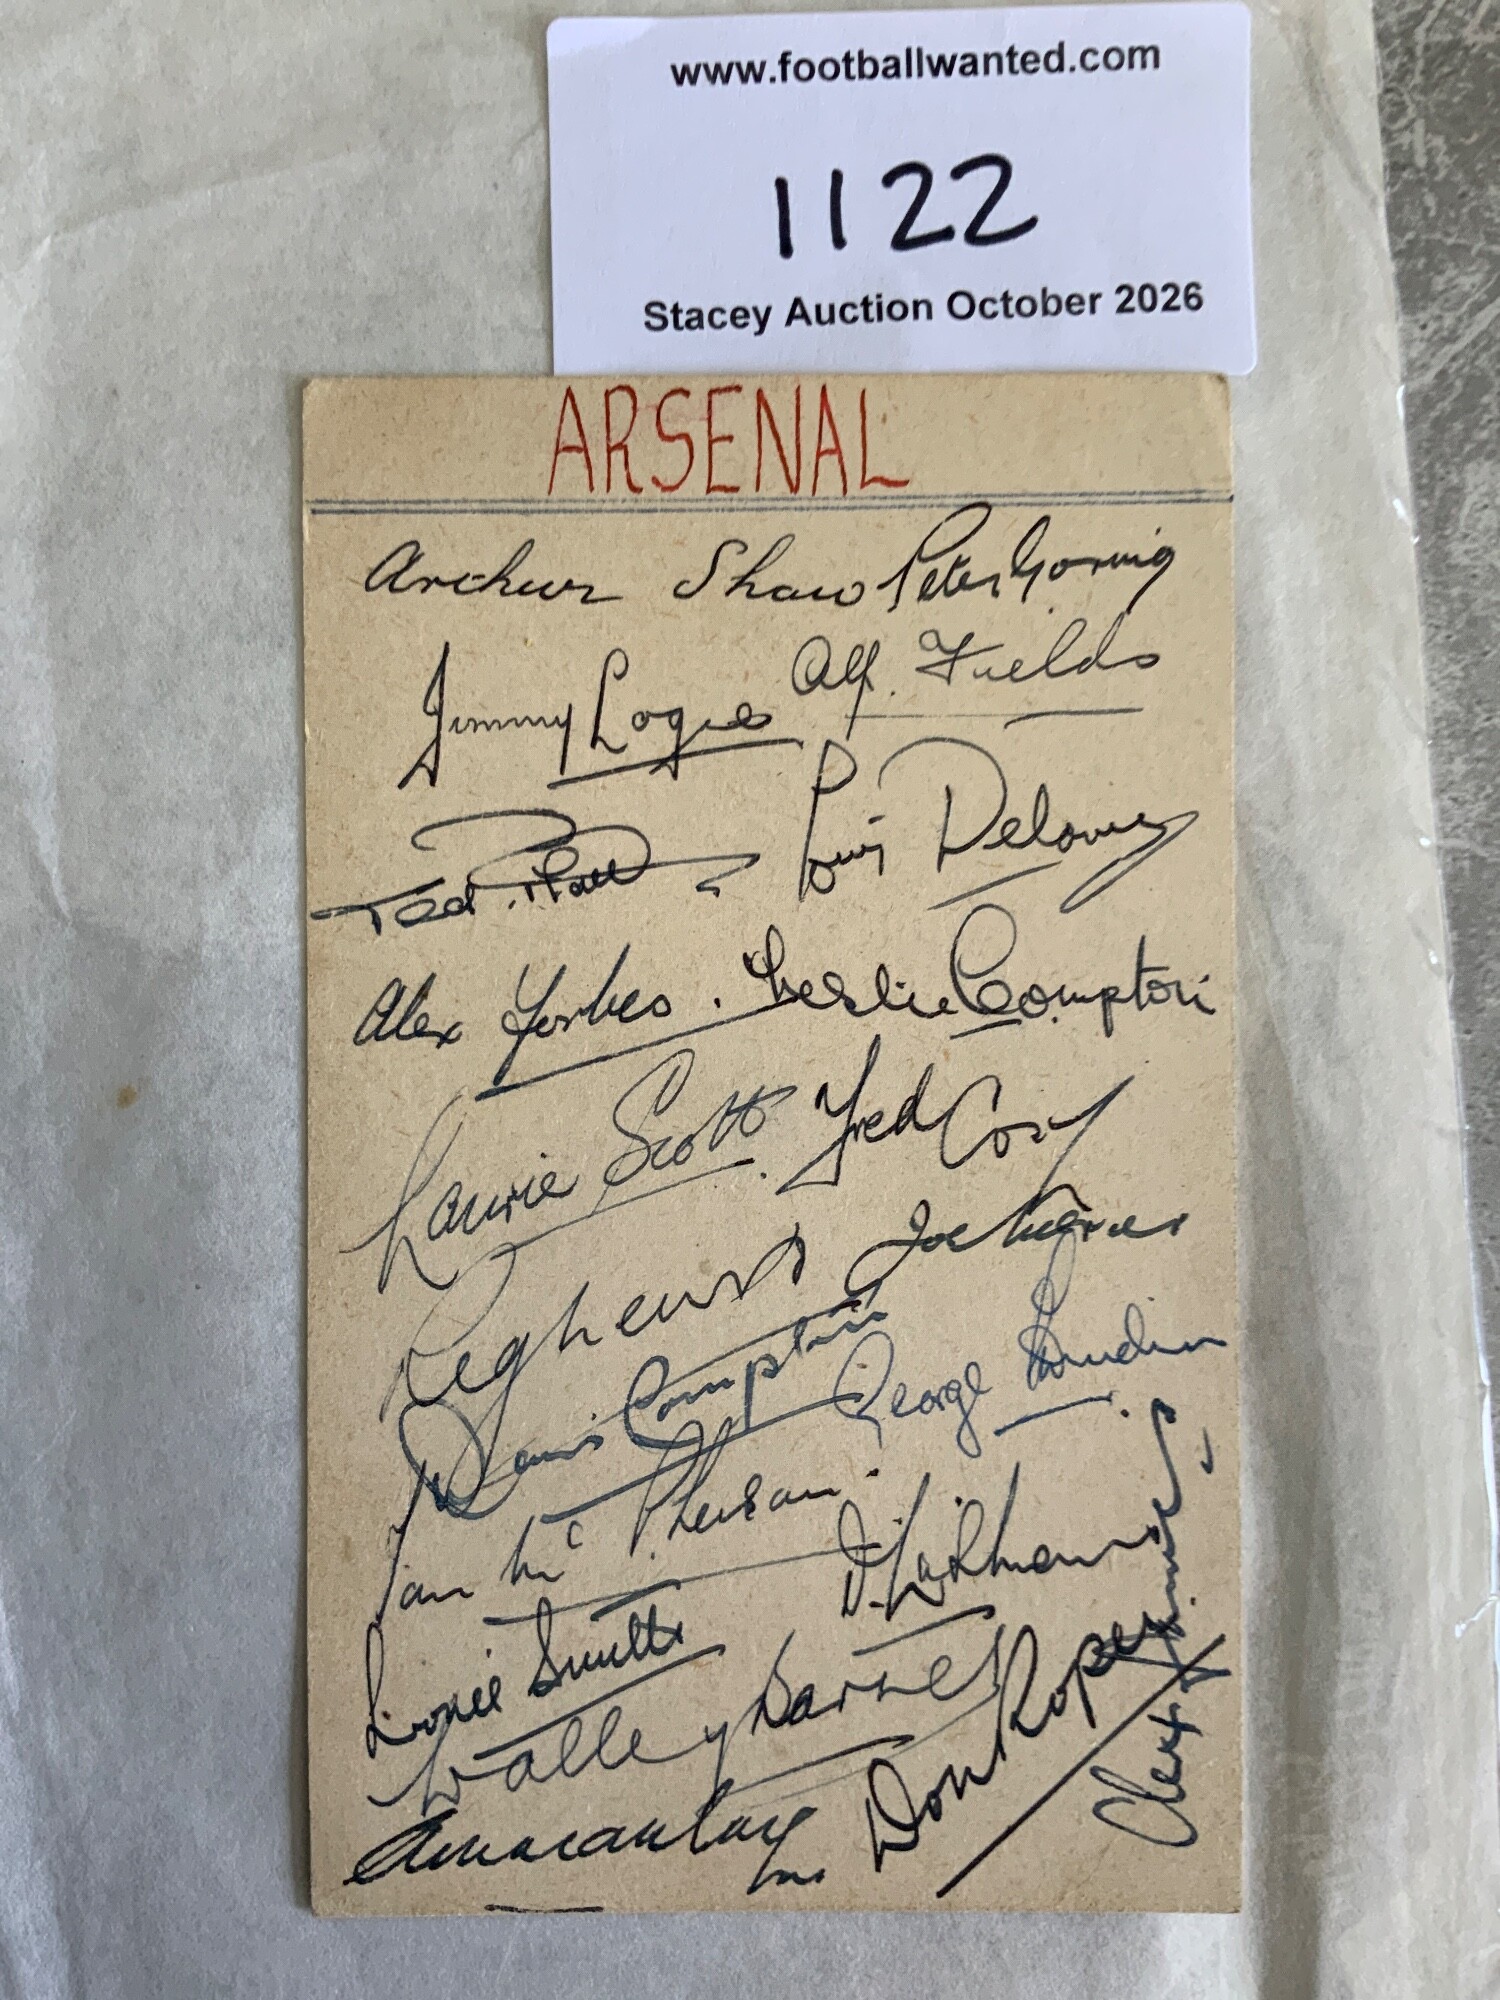 www.footballwanted.com
1122
Stacey Auction October 2026
ARSENAL
Archur Shaw Peter Goring
Jimmy Logie Alf. Fields
Ted. Platt Lewis Delaney
Alex Forbes. Leslie Compton
Laurie Scott. Fred Cox
Reg Lewis Joe Mercer
Denis Compton George Swindin
Ian Mc Pherson.
Lionel Smith
Walley Barnes Don Roper
A Macaulay Alex